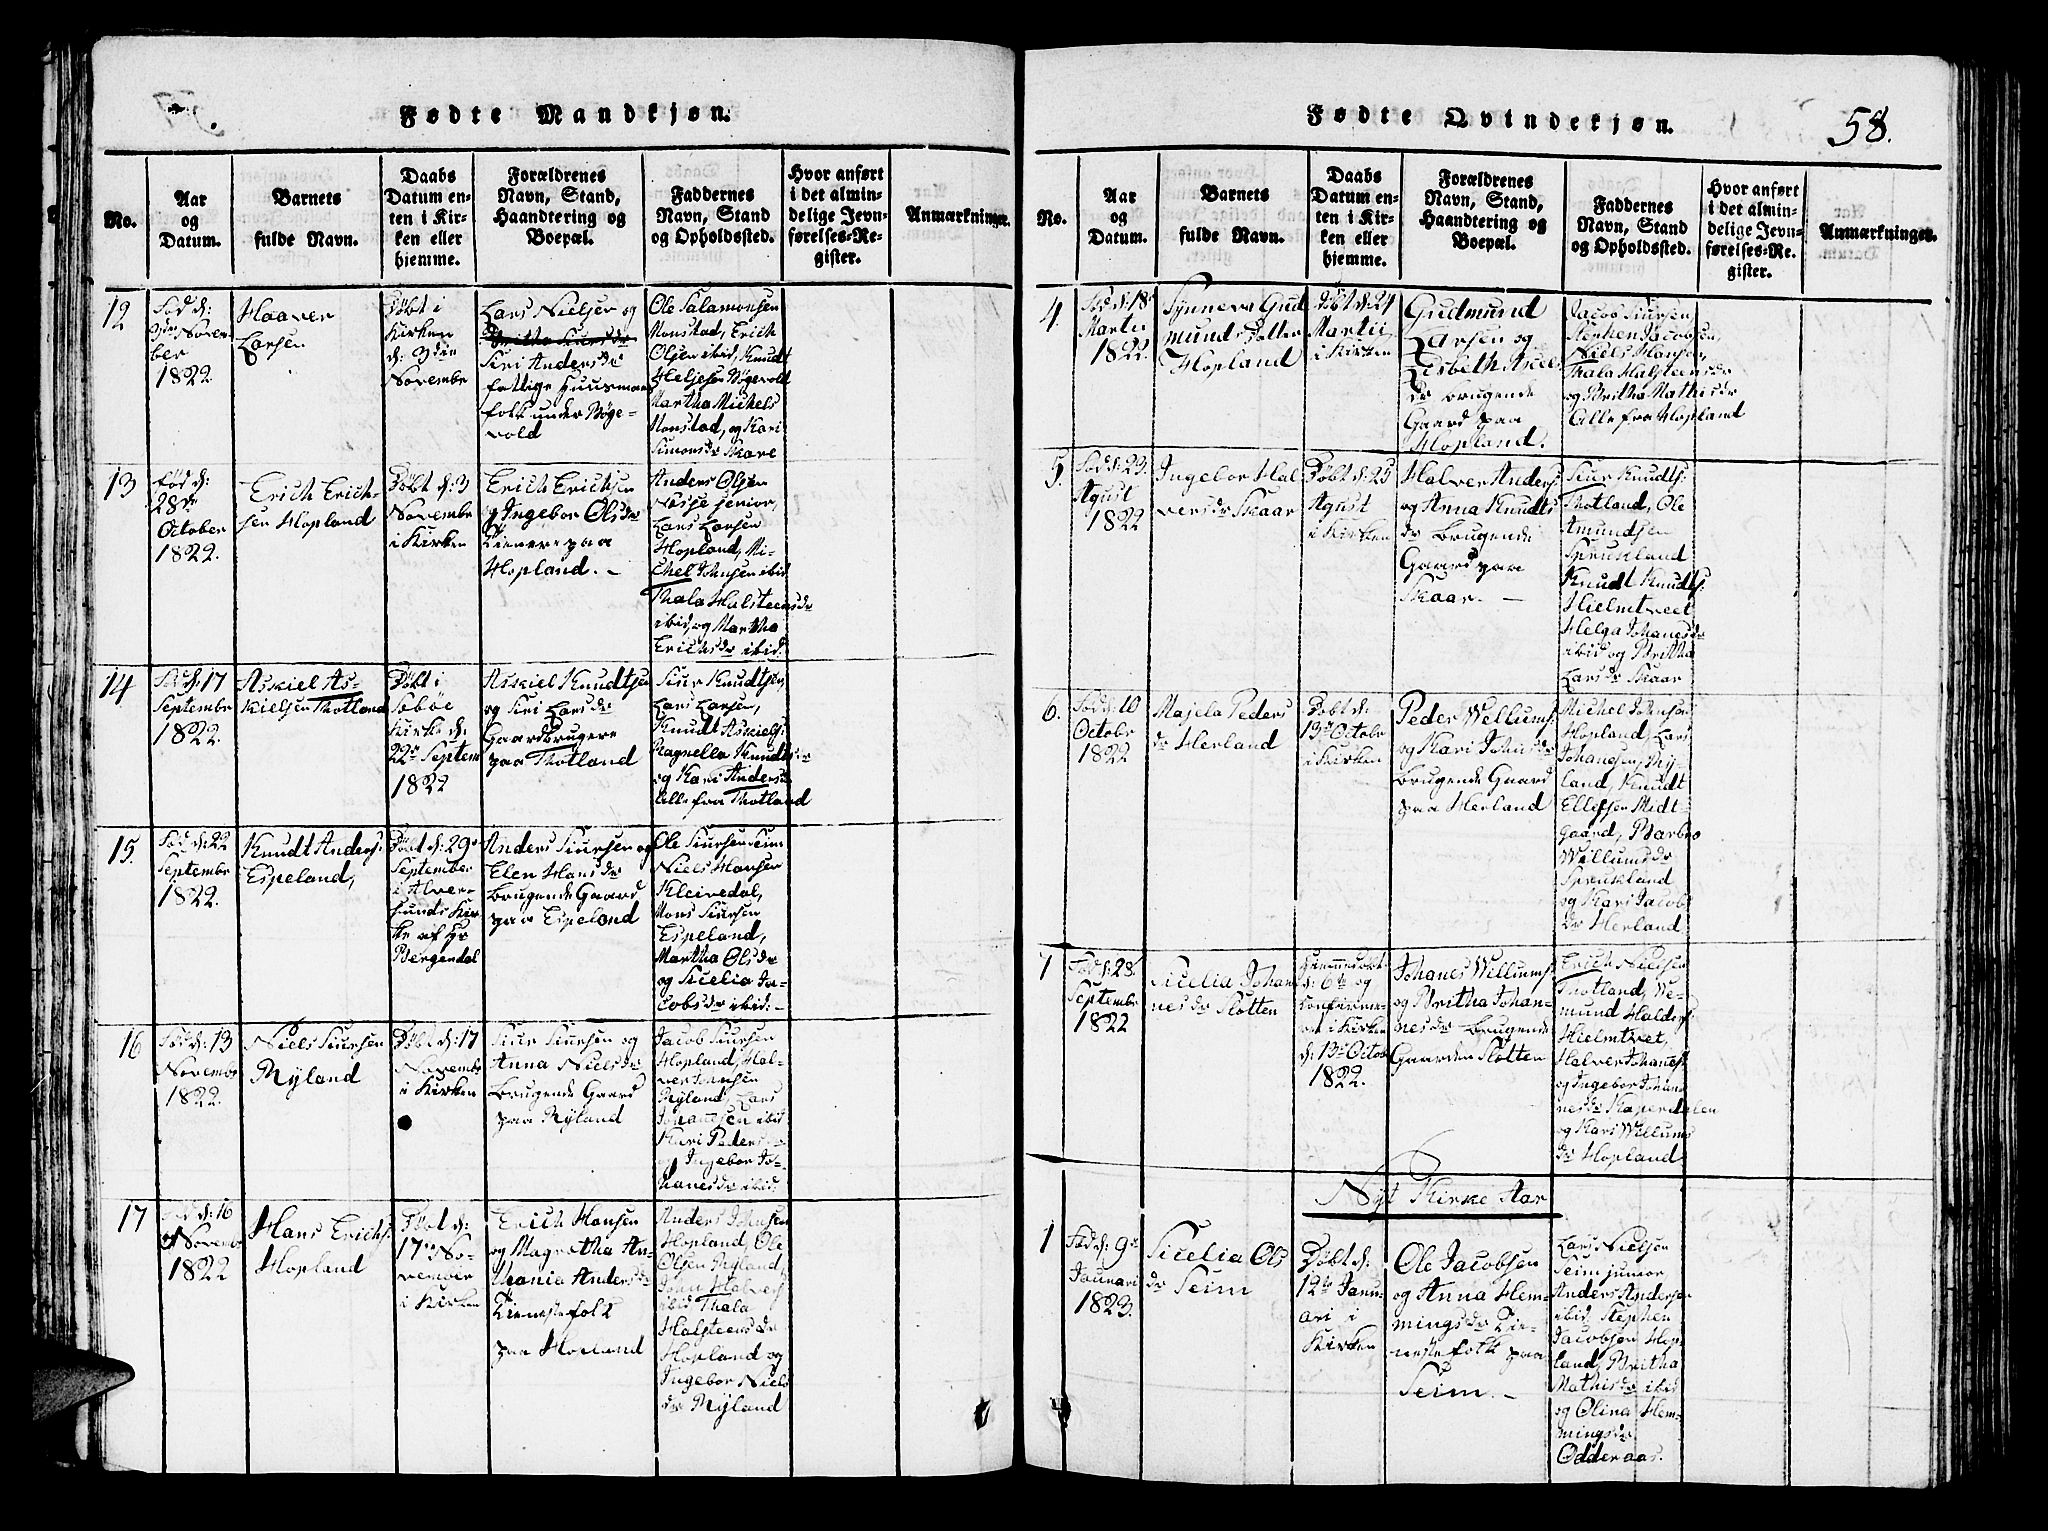 Fødte Mandkjøn.
No.
Aar
og
Datum.
Barnets
fulde Navn.
Daabs
Datum en-
ten i Kir-
ken eller
hjemme.
Forældrenes
Navn, Stand,
Haandtering og
Boepæl.
Faddernes
Navn, Stand
og Opholdssted.
Hvor anført
i det almin-
delige Jevn-
førelses-Re-
gister.
Anmærkninger.
12
Fød d:
Novem-
ber
1822.
Haaver
Larsen
Døbt i
Kirken
d: 3die
Novembr
Lars Nielsen og
Siri Andersdr
fattige Huusmands
folk under Bøge-
vold
Ole Salamonsen
Monstad, Erich
Olsen ibid, Knudt
Heljesen Bøgevold
Martha Michels
Monstad, og Kari
Simonsdr Skare
13
Fød d:
28de
October
1822.
Erich Erich-
sen Hopland
Døbt d: 3
Novembr
i Kirken
Erich Erichsen
og Ingebor Olsdr
Tienere paa
Hopland. –
Anders Olsen
senior,
Lars Larsen
Hopland, Mi-
chel Johnsen ibid
Thala Halsteensdr
ibid, og Martha
Erichsdr ibid:
14
Fød d: 17
Septembr
1822.
Askiel As-
kielsen Thotland
Døbt i
Sæbøe
Kirke d:
22de Septem
1822
Askiel Knudtsen
og Siri Larsdr
Gaardbrugere
paa Thotland
Siur Knudtsen,
Lars Larsen,
Knudt Askiels:
Ragnella Knudtsdr
og Kari Andersdr
Alle fra Thotland
15.
Fød d: 22
Septembr
1822.
Knudt Anders:
Espeland,
Døbt d: 29de
September
i Alver-
sunds Kir-
ke af Hr
Bergendal
Anders Siursen og
Elen Hansdr
brugende Gaard
paa Espeland
Ole Siursen Seim
Niels Hansen
Kleivedal,
Mons Siursen
Espeland,
Martha Olsdr
og Sicelia Ja-
cobsdr ibid: –
16
Fød d: 13
Novembr
1822.
Niels Siursen
Ryland
Døbt d: 17
Novembr
i Kirken
Siur Siursen og
Anna Nielsdr
brugende Gaard
paa Ryland
Jacob Siursen
Hopland, Hal-
ver Ivarsen
Ryland, Lars
Johannsen ibid
Kari Pedersdr
og Ingebor Jo-
hanesdr ibid:
17
Fød d: 16
Novembr
1822
Hans Erichs:
Hopland
Døbt d:
17de No-
vember
i Kirken
Erich Hansen
og Magretha An-
thonia Andersdr
Tienestefolk
paa Hopland
Anders Johnsen
Hopland, Ole
Olsen Ryland,
John Halvers
ibid Thala
Halsteensdr
Hopland og
Ingebor Niels
dr Ryland
Fødte Qvindekjøn.
58.
No.
Aar
og
Datum.
Barnets
fulde Navn.
Daabs
Datum en-
ten i Kir-
ken eller
hjemme.
Forældrenes
Navn, Stand,
Haandtering og
Boepæl.
Faddernes
Navn, Stand
og Opholdssted.
Hvor anført
i det almin-
delige Jevn-
førelses-Re-
gister.
Anmærkninger.
4.
Fød d: 18de
Martii
1822.
Synneva Gud
mundsdatter
Hopland
Døbt d: 24
Martii
i Kirken
Gudmund
Larsen og
Lisbeth Axels
dr brugende
Gaard paa
Hopland.
Jacob Siursen,
Stephen Jacobsen,
Niels Hansen,
Thala Halsteensdr
og Britha Mathisdr
Alle fra Hopland
5.
Fød d: 23.
Agust
1822
Ingebor Hal
versdr Skaar
Døbt d: 25
Agust
i Kirken
Halver Anders:
og Anna Knudts
dr brugende
Gaard paa
Skaar. –
Siur Knudts:
Thotland, Ole
Amundsen
Spruskland
Knudt Knudts:
Hielmtveet
Helga Johanesdr
ibid og Britha
Larsdr Skaar
6.
Fød d: 10
Octobr
1822
Majela Peders
dr Herland
Døbt d:
13de Octobr
i Kirken
Peder Wellums:
og Kari Johnsdr
brugende Gaard
paa Herland
Michel Johnsen
Hopland, Lars
Johanesen, Ry-
land, Knudt
Ellefsen Midt
gaard, Barbro
Willumsdr
Spruskland
og Kari Jacobs
dr Herland
7
Fød d: 28
Septembr
1822
Sicelia Johan
nesdr Slotten
Hiemmedøbt
d: 6te og
Confirme-
ret i Kirken
d: 13de Octob
1822.
Johanes Wellums:
og Britha Johan-
nesdr brugende
Gaarden Slotten
Erich Nielsen
Thotland, We-
mund Haldors
Hielmtvet,
Halver Johanes:
og Ingebor Johan
nesdr Kaperdalen
og Kari Willums
dr Hopland
Nyt Kirke Aar
1
Fød d: 9de
Januari
1823.
Sicelia Ols
dr Seim
Døbt d:
12te Janu-
ari i
Kirken
Ole Jacobsen
og Anna Hem-
mingsdr Tie-
nestefolk paa
Seim. –
Lars Nielsen
Seim junior
Anders Andersen
ibid Stephen
Jacobsen Hop
land, Britha
Mathisdr ibid
og Olina Hem-
mingsdr
Odderaas.